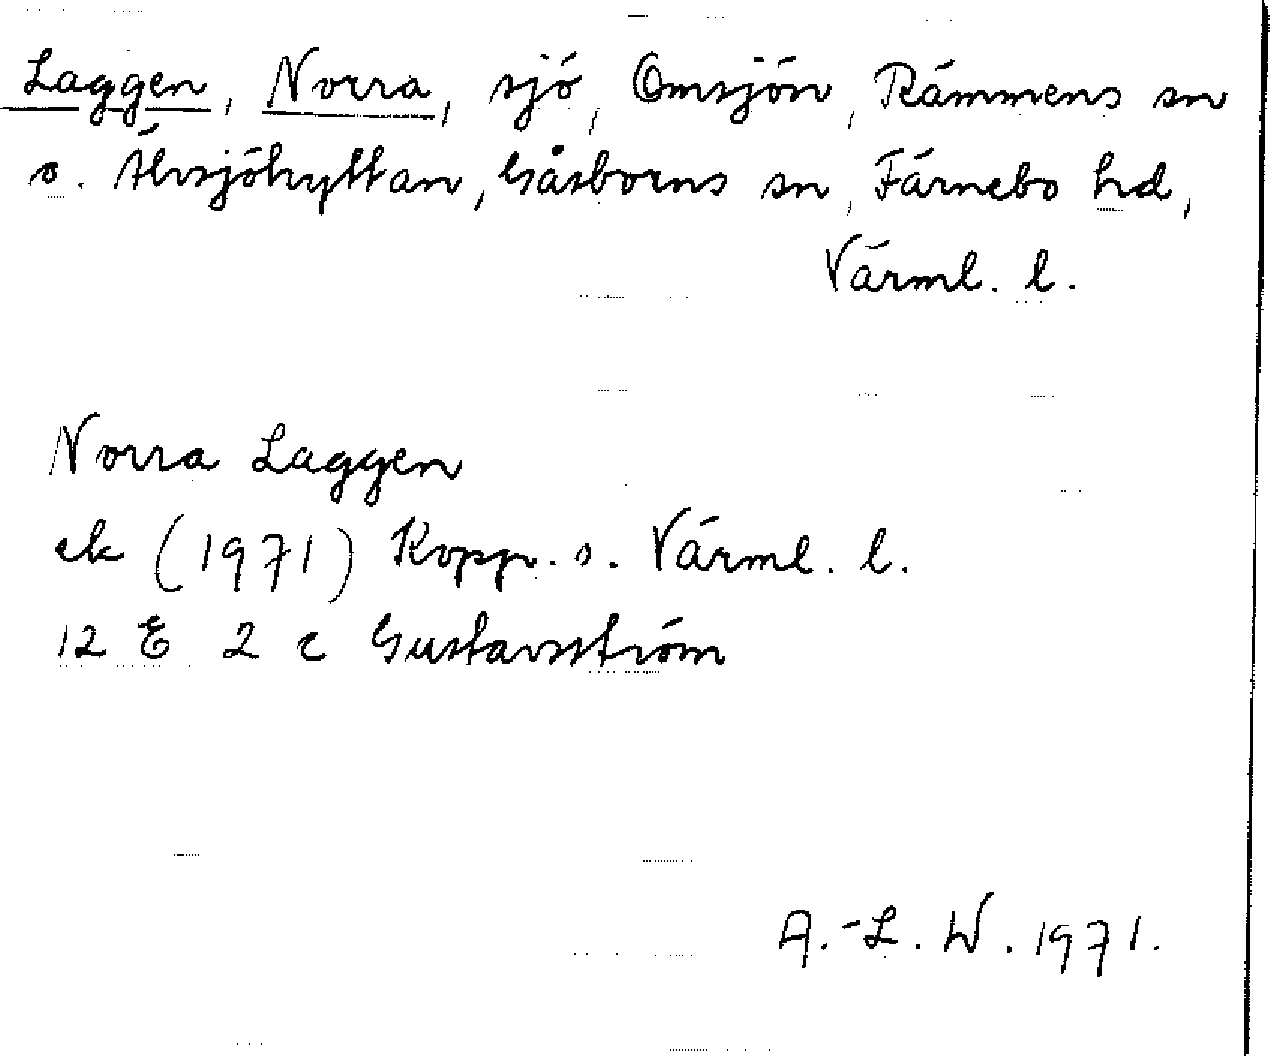 Laggen, Norra, sjö, Omsjön, Rämmens sn
o. Älvsjöhyttan, Gåsborns sn, Färnebo hd,
Värml. l.
Norra Laggen
ek (1971) Kopp. o. Värml. l.
12 E 2 c Gustavsström
A.-L. W. 1971.